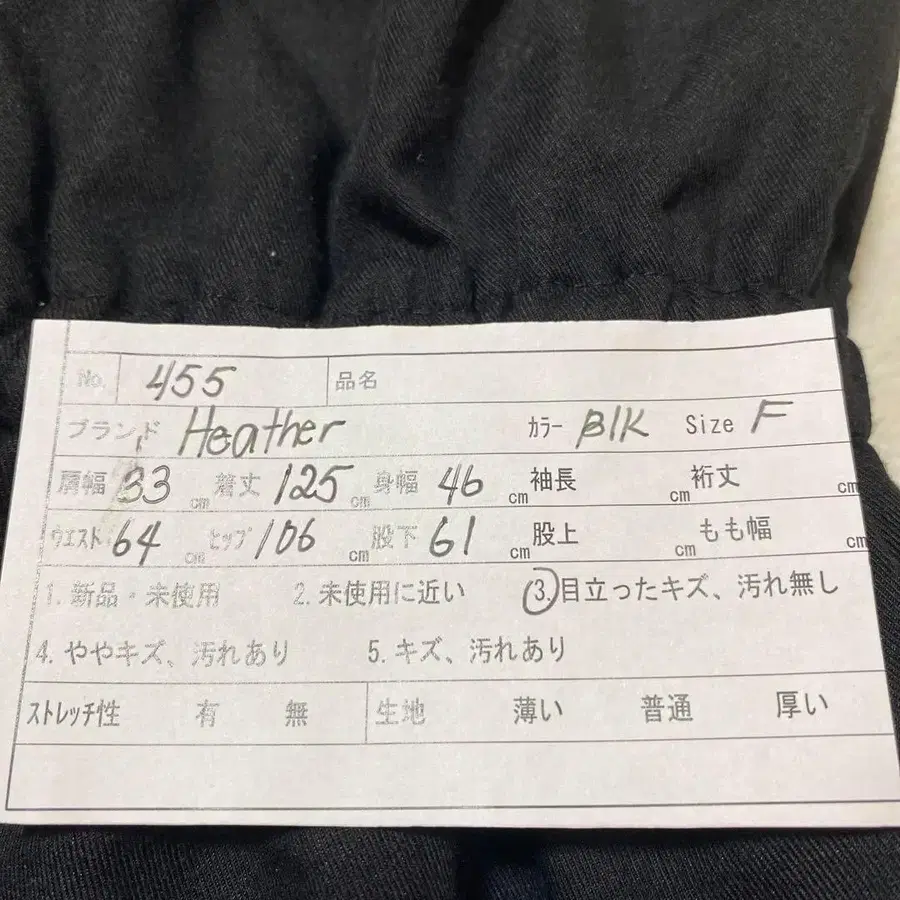 No. 455 品名
ブランド Heather カラー Blk Size F
肩幅 33 cm 着丈 125 cm 身幅 46 cm 袖長 cm 裄丈 cm
ウエスト 64 cm ヒップ 106 cm 股下 61 cm 股上 cm もも幅 cm
1. 新品・未使用 2. 未使用に近い 3. 目立ったキズ、汚れ無し
4. ややキズ、汚れあり 5. キズ、汚れあり
ストレッチ性 有 無 生地 薄い 普通 厚い